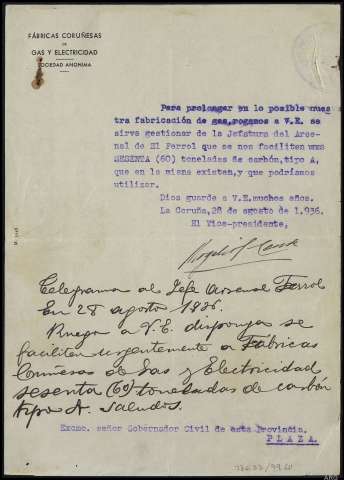 FÁBRICAS CORUÑESAS
DE
GAS Y ELECTRICIDAD
SOCIEDAD ANONIMA
Para prolongar en lo posible nues
tra fabricación de gas, rogamos a V.E. se
sirva gestionar de la Jefatura del Arse-
nal de El Ferrol que se nos faciliten unas
SESENTA (60) toneladas de carbón, tipo A,
que en la misma existen, y que podríamos
utilizar.
Dios guarde a V.E. muchos años.
La Coruña, 28 de agosto de 1.936.
El Vice-presidente,
Telegrama al Jefe Arsenal Ferrol
En 28 agosto 1936.
Ruego a V.E. disponga se
faciliten urgentemente a Fábricas
Coruñesas de Gas y Electricidad
sesenta (60) toneladas de carbón
tipo A. Saludos.
Excmo. señor Gobernador Civil de esta Provincia.
PLAZA.